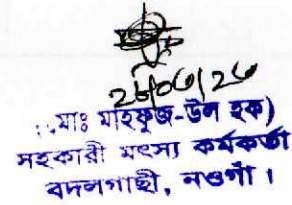 ২৮/০৬/২৬
(মোঃ মাহফুজ-উল হক)
সহকারী মৎস্য কর্মকর্তা
বদলগাছী, নওগাঁ।